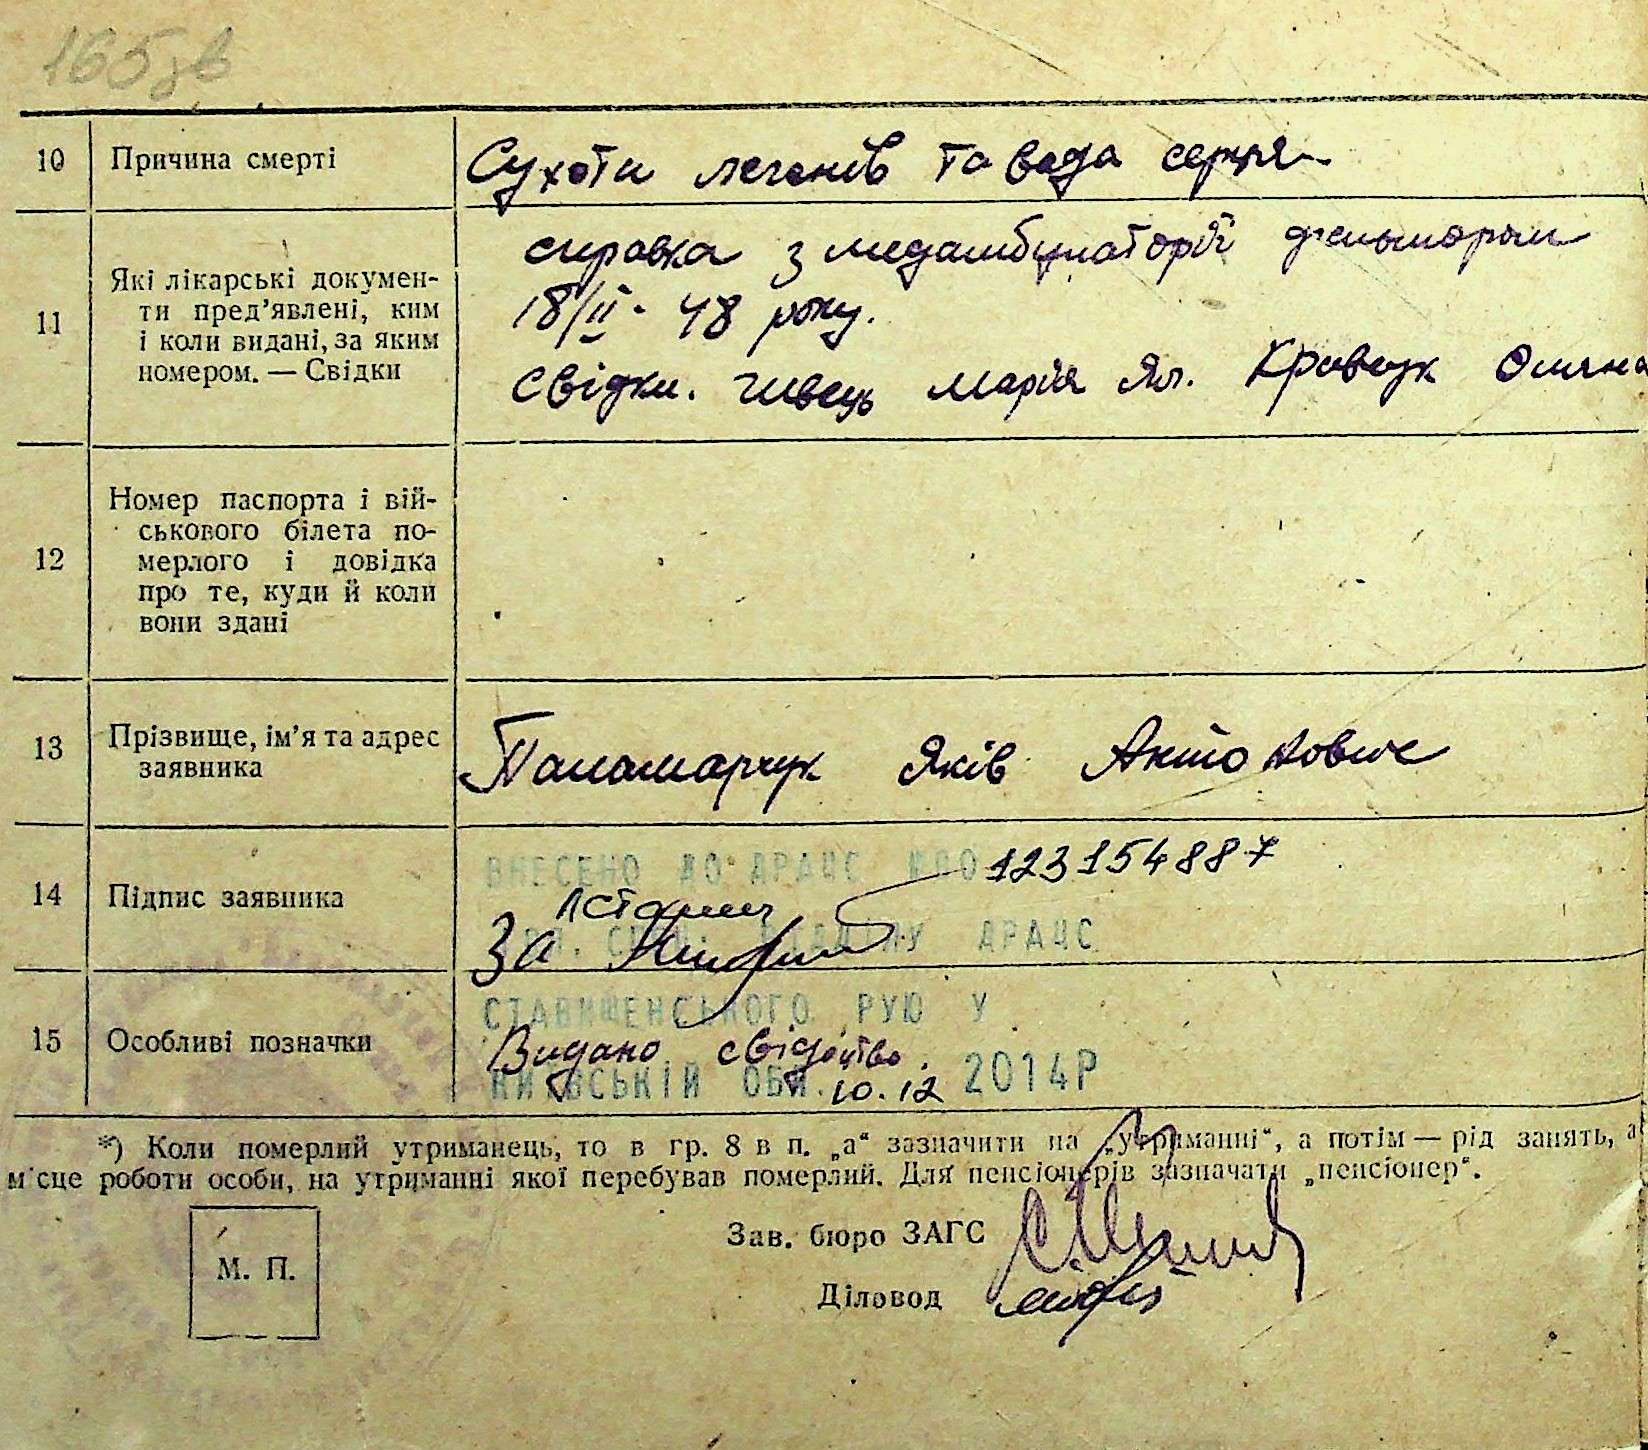 165зв
10 Причина смерті Сухоти легенів та вада серця
11 Які лікарські докумен-
ти пред'явлені, ким
і коли видані, за яким
номером. — Свідки
справка з медамбулаторії
18/II - 48 року.
Свідки. Швець Марія Як. Кравчук Оляна
12 Номер паспорта і вій-
ськового білета по-
мерлого і довідка
про те, куди й коли
вони здані
13 Прізвище, ім'я та адрес
заявника
Паламарчук Яків Антонович
14 Підпис заявника
ВНЕСЕНО ДО ДРАЦС 123154887
За
ВІДДІЛУ ДРАЦС
СТАВИЩЕНСЬКОГО РУЮ У
15 Особливі позначки Видано свідоцтво.
КИЇВСЬКІЙ ОБЛ. 10.12 2014Р
*) Коли померлий утриманець, то в гр. 8 в п. „а“ зазначити на „утриманні“, а потім — рід занять, а
місце роботи особи, на утриманні якої перебував померлий. Для пенсіонерів зазначати „пенсіонер“.
Зав. бюро ЗАГС
М. П.
Діловод